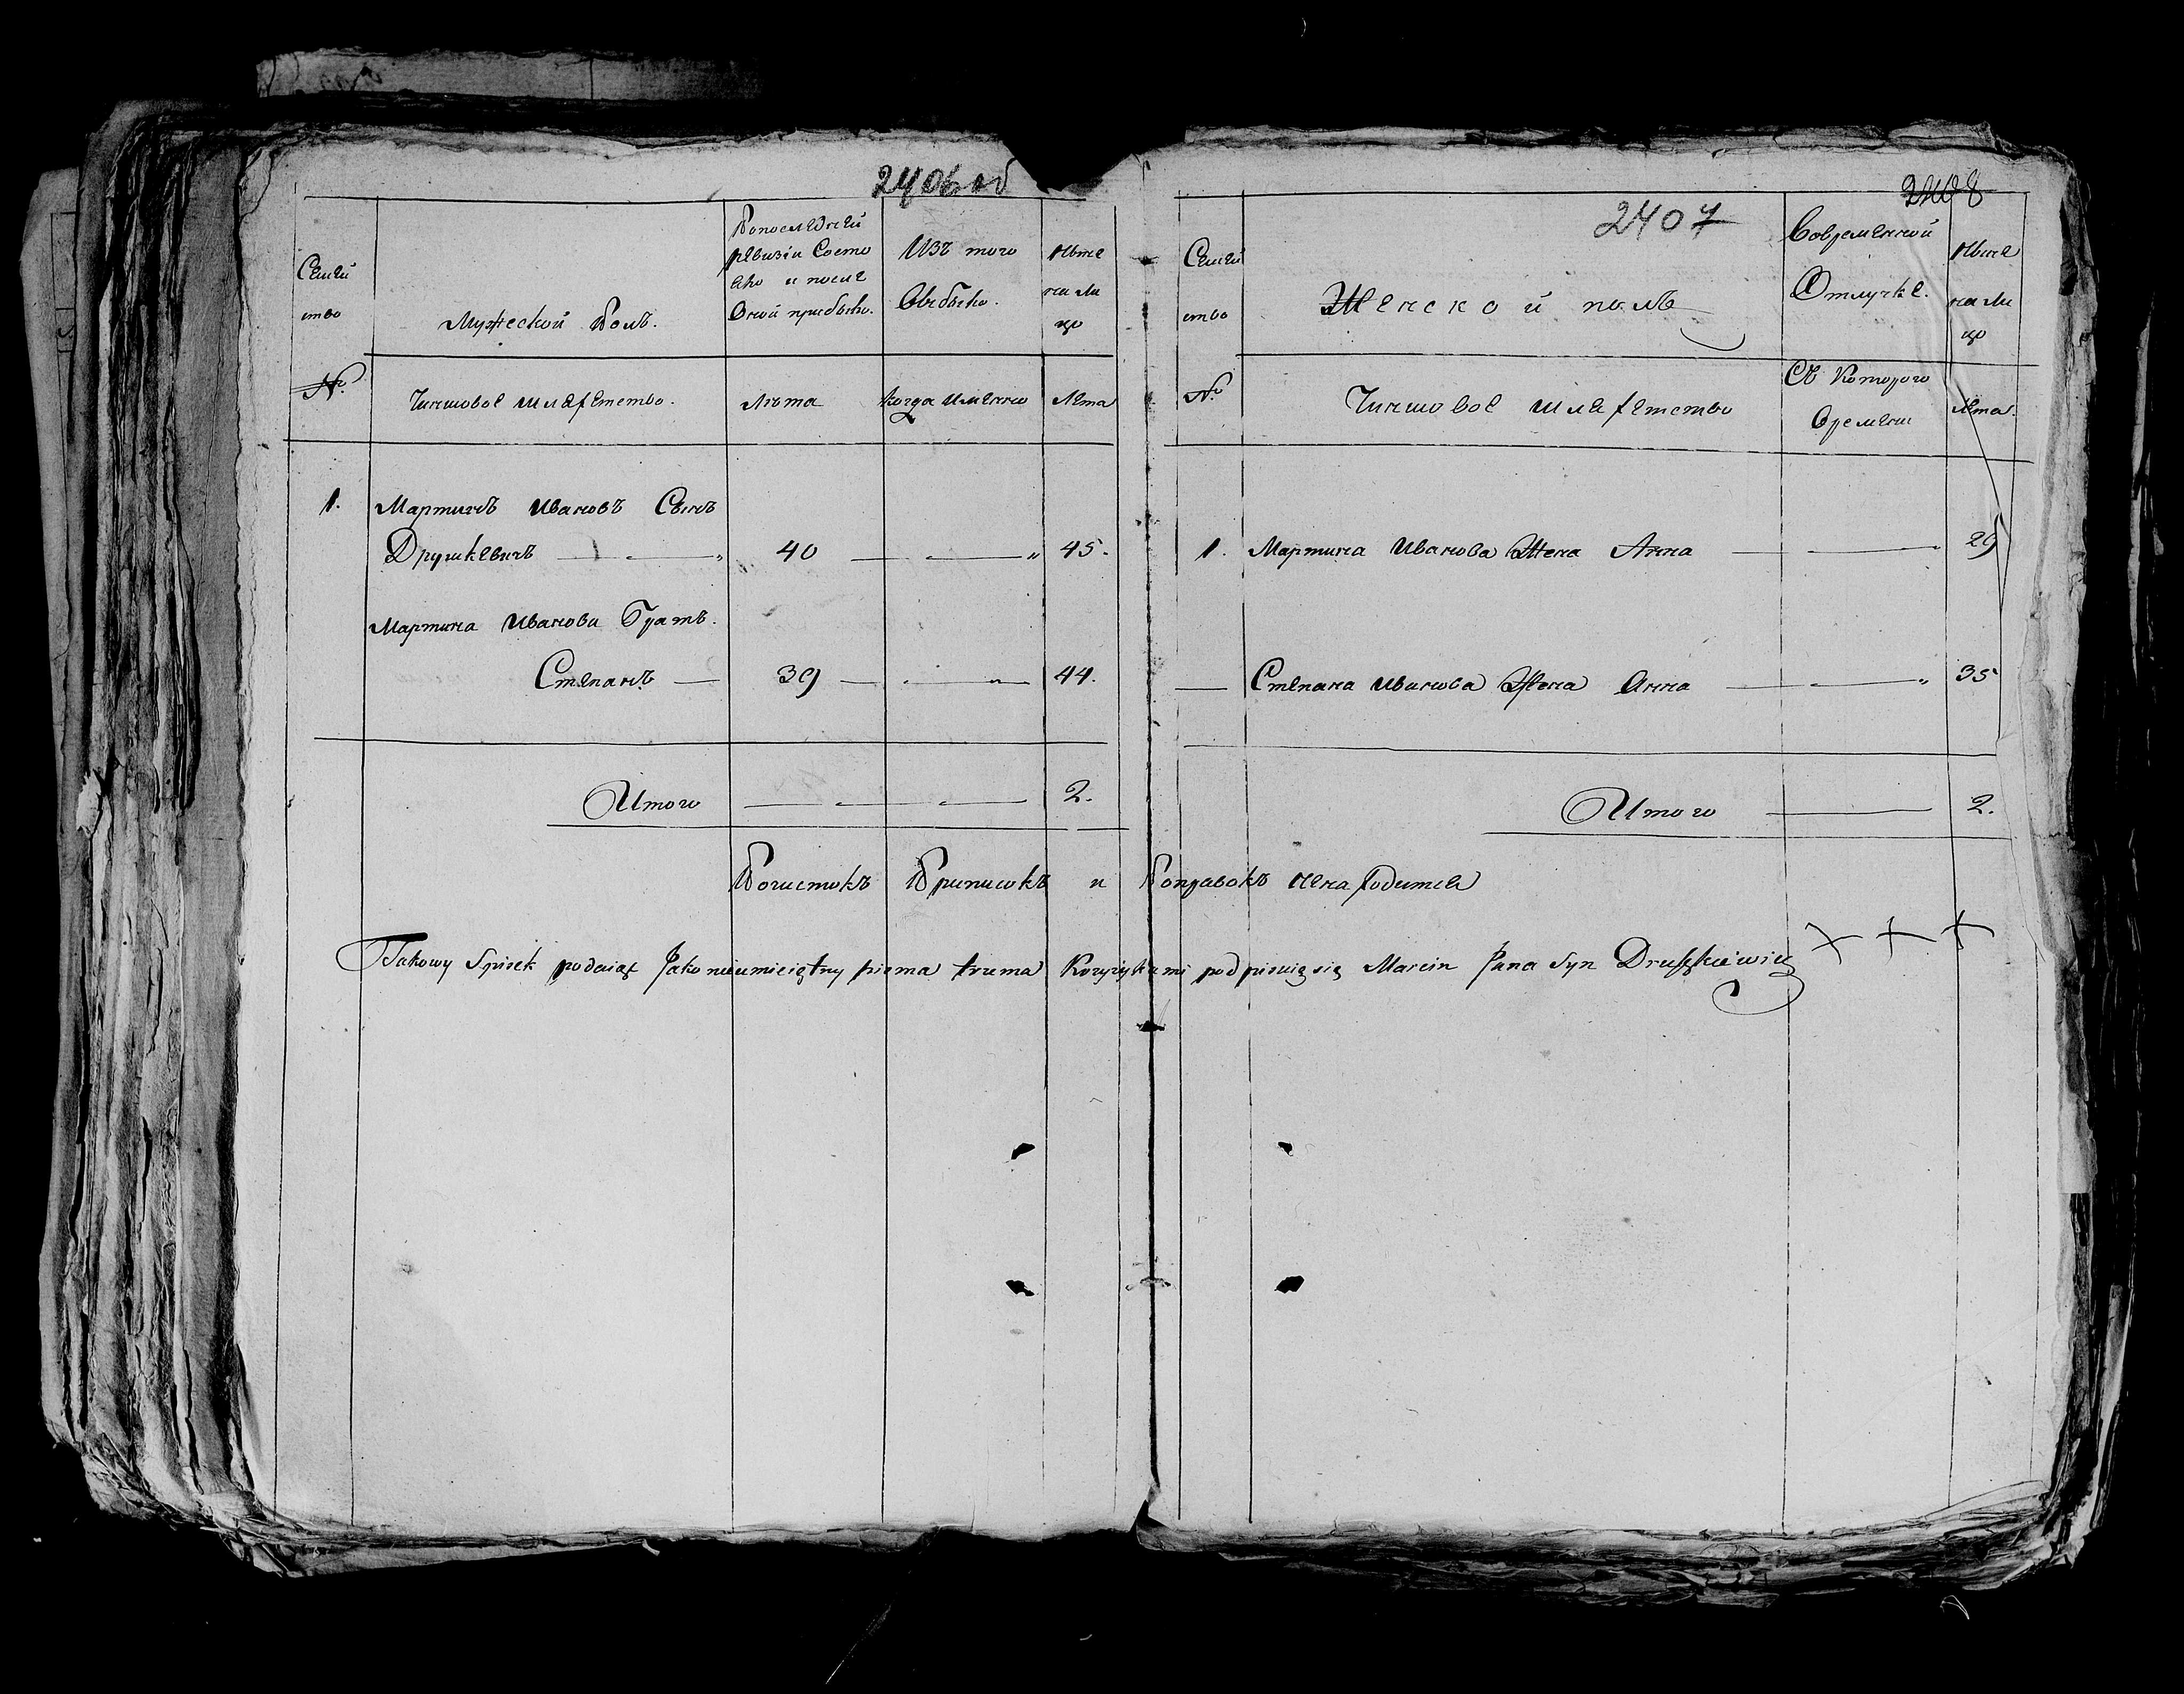 2406 об
Семей
ство
Мужеской Полъ.
Попоследней
ревизіи Состо
яло и после
Оной прибыло.
Изъ того
Выбыло.
Ныне
на ли
цо
№
Чиншовое шляхетство.
Лѣта
когда именно
Лета
1. Мартинъ Ивановъ Сынъ
Друшкевичъ 40 45.
Мартина Иванова Братъ.
Степанъ 39 44.
Итого 2.
2408
2407
Семей
ство
Женской полъ
Вовременной
Отлучке.
Ныне
на ли
цо
№
Чиншовое шляхетство
Съ Которого
Времени
Лета.
1. Мартина Иванова Жена Анна 29
Степана Иванова Жена Анна 35
Итого 2.
Почистокъ Приписокъ и Поправокъ ненаходится
Takowy Spisek podaiąc Jako nieumieiętny pisma trzema Krzyżykami podpisuię się Marcin Jana Syn Druszkiewicz + + +